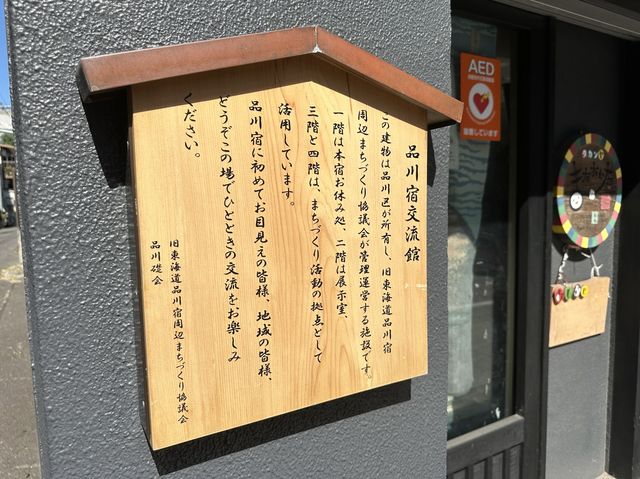 品川宿交流館
この建物は品川区が所有し、旧東海道品川宿
周辺まちづくり協議会が管理運営する施設です。
一階は本宿お休み処、二階は展示室、
三階と四階は、まちづくり活動の拠点として
活用しています。
品川宿に初めてお目見えの皆様、地域の皆様、
どうぞこの場でひとときの交流をお楽しみ
ください。
旧東海道品川宿周辺まちづくり協議会
品川礎会
AED